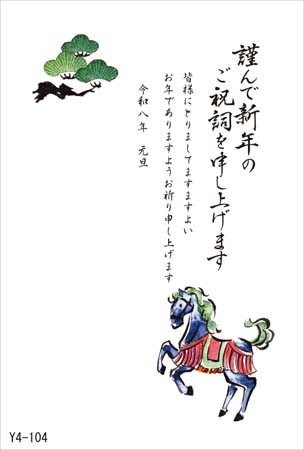 謹んで新年の
ご祝詞を申し上げます
皆様にとりましてますますよい
お年でありますようお祈り申し上げます
令和八年　元旦
Y4-104